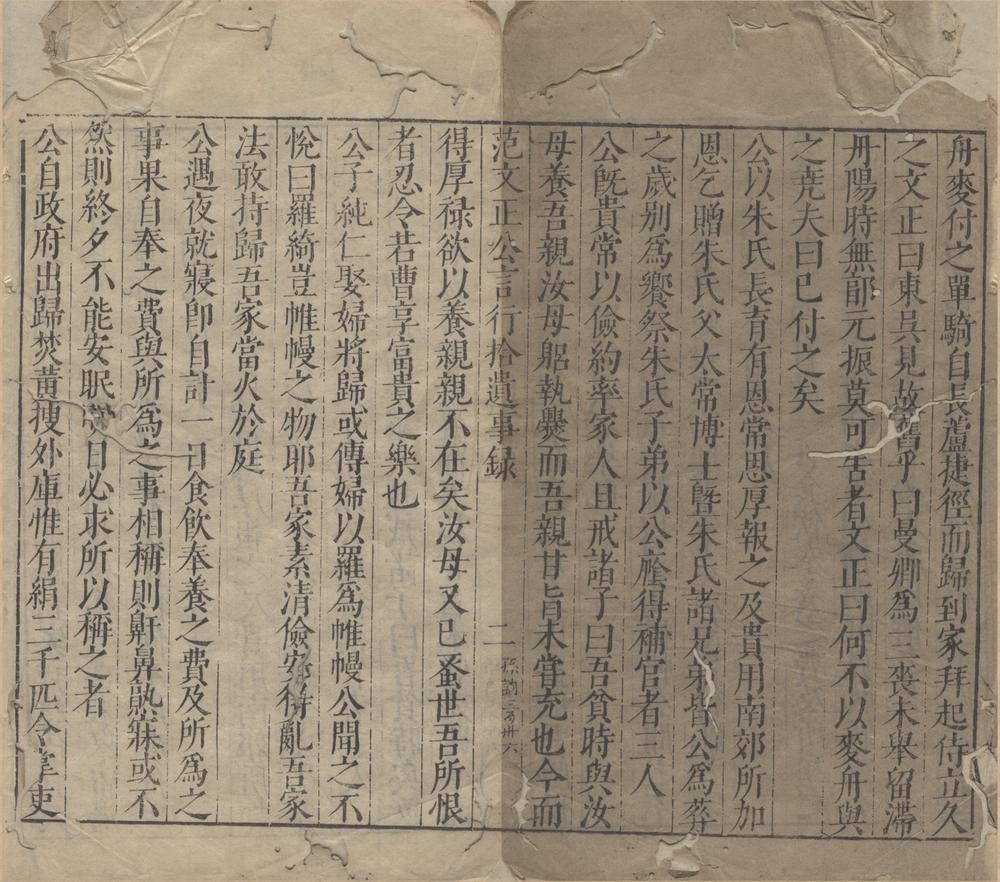 舟麥付之單騎自長蘆捷徑而歸到家拜起侍立久
之文正曰東吳見故舊乎曰曼卿為三喪未舉留滯
丹陽時無郭元振莫可告者文正曰何不以麥舟與
之堯夫曰已付之矣
公以朱氏長育有恩常思厚報之及貴用南郊所加
恩乞贈朱氏父太常博士暨朱氏諸兄弟皆公為葬
之歲别為饗祭朱氏子弟以公廕得補官者三人
公既貴常以儉約率家人且戒諸子曰吾貧時與汝
母養吾親汝母躬執爨而吾親甘旨未嘗充也今而
范文正公言行拾遺事録 二
得厚禄欲以養親親不在矣汝母又已蚤世吾所恨
者忍令若曹享富貴之樂也
公子純仁娶婦將歸或傳婦以羅為帷幔公聞之不
悅曰羅綺豈帷幔之物耶吾家素清儉安得亂吾家
法敢持歸吾家當火於庭
公遇夜就寢即自計一日食飲奉養之費及所為之
事果自奉之費與所為之事相稱則鼾鼻熟寐或不
然則終夕不能安眠日必求所以稱之者
公自政府出歸焚黃搜外庫惟有絹三千匹令掌吏